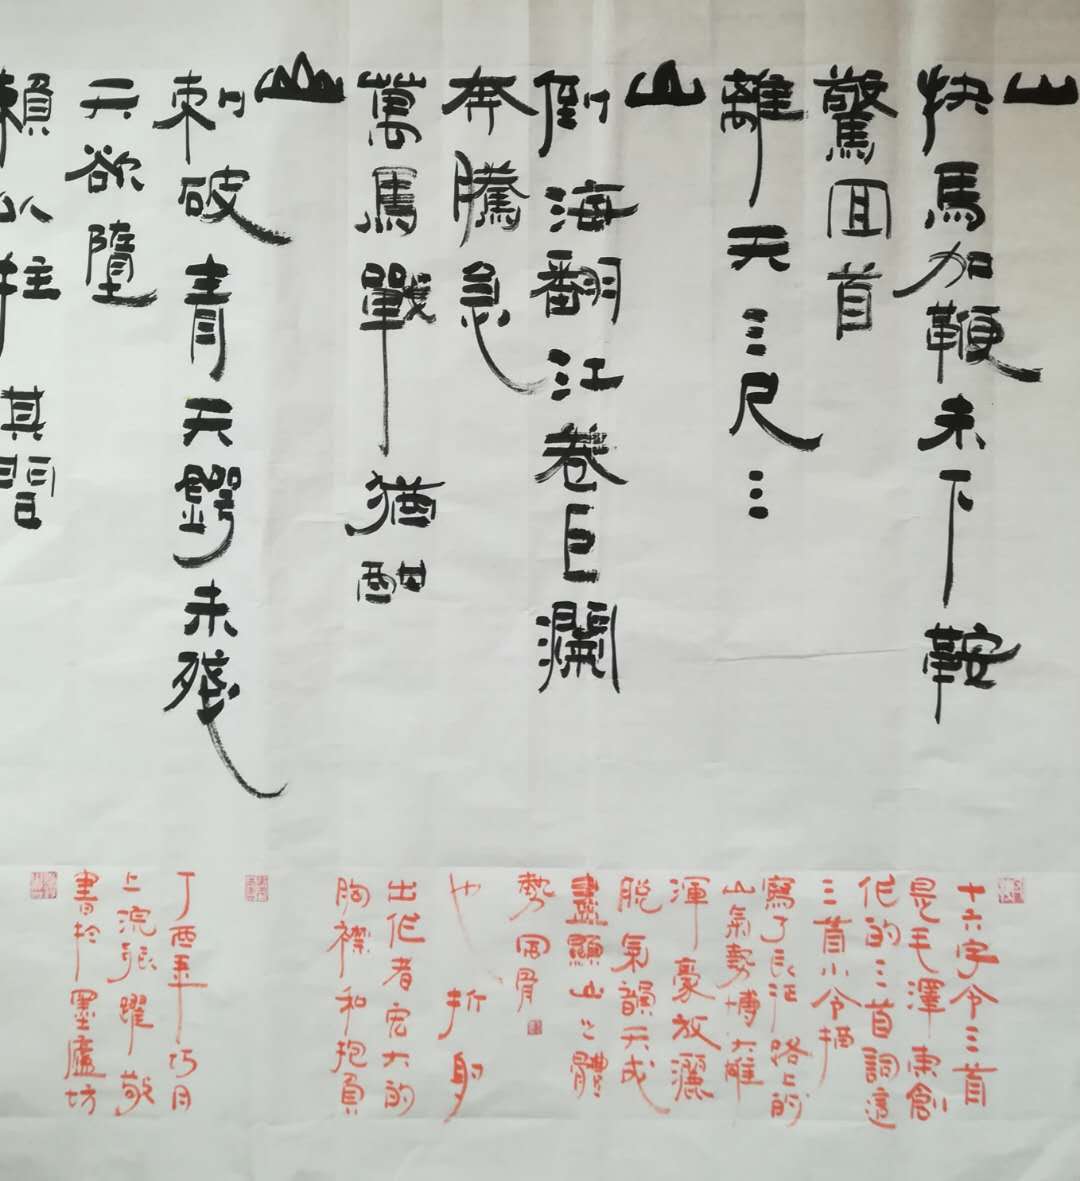 山
快馬加鞭未下鞍
驚回首
離天三尺三
山
倒海翻江卷巨瀾
奔騰急
萬馬戰猶酣
山
刺破青天鍔未殘
天欲墮
賴以拄其間
十六字令三首
是毛澤東創
作的三首詞這
三首小令描
寫了長征路上的
山氣勢博大雄
渾豪放灑
脫氣韻天成
盡顯山之體
勢風骨
也折射
出作者宏大的
胸襟和抱負
丁酉年巧月
上浣張躍敬
書於墨廬坊